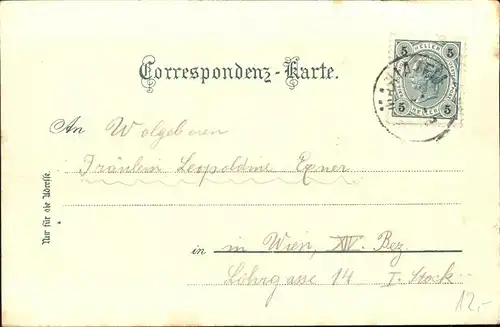 Correspondenz-Karte.
5 HELLER 5
5 HELLER 5
An Wolgeboren
Fräulein Leopoldine Exner
Nur für die Adresse.
in in Wien, XIV. Bez.
Löhrgasse 14 I. Stock
12,-